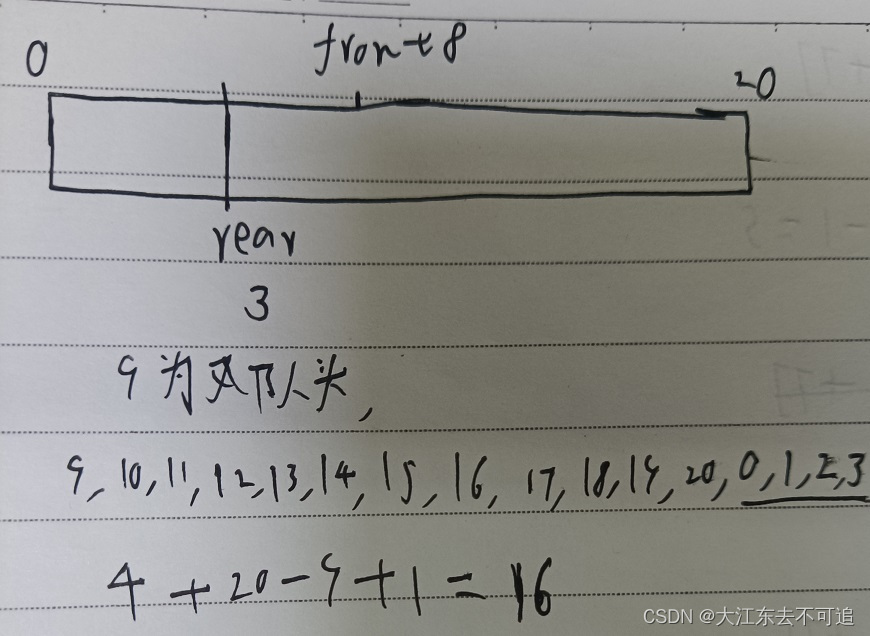 0 front 8 20
rear
3
9为队头,
9, 10, 11, 12, 13, 14, 15, 16, 17, 18, 19, 20, 0, 1, 2, 3
4 + 20 - 9 + 1 = 16
CSDN @大江东去不可追